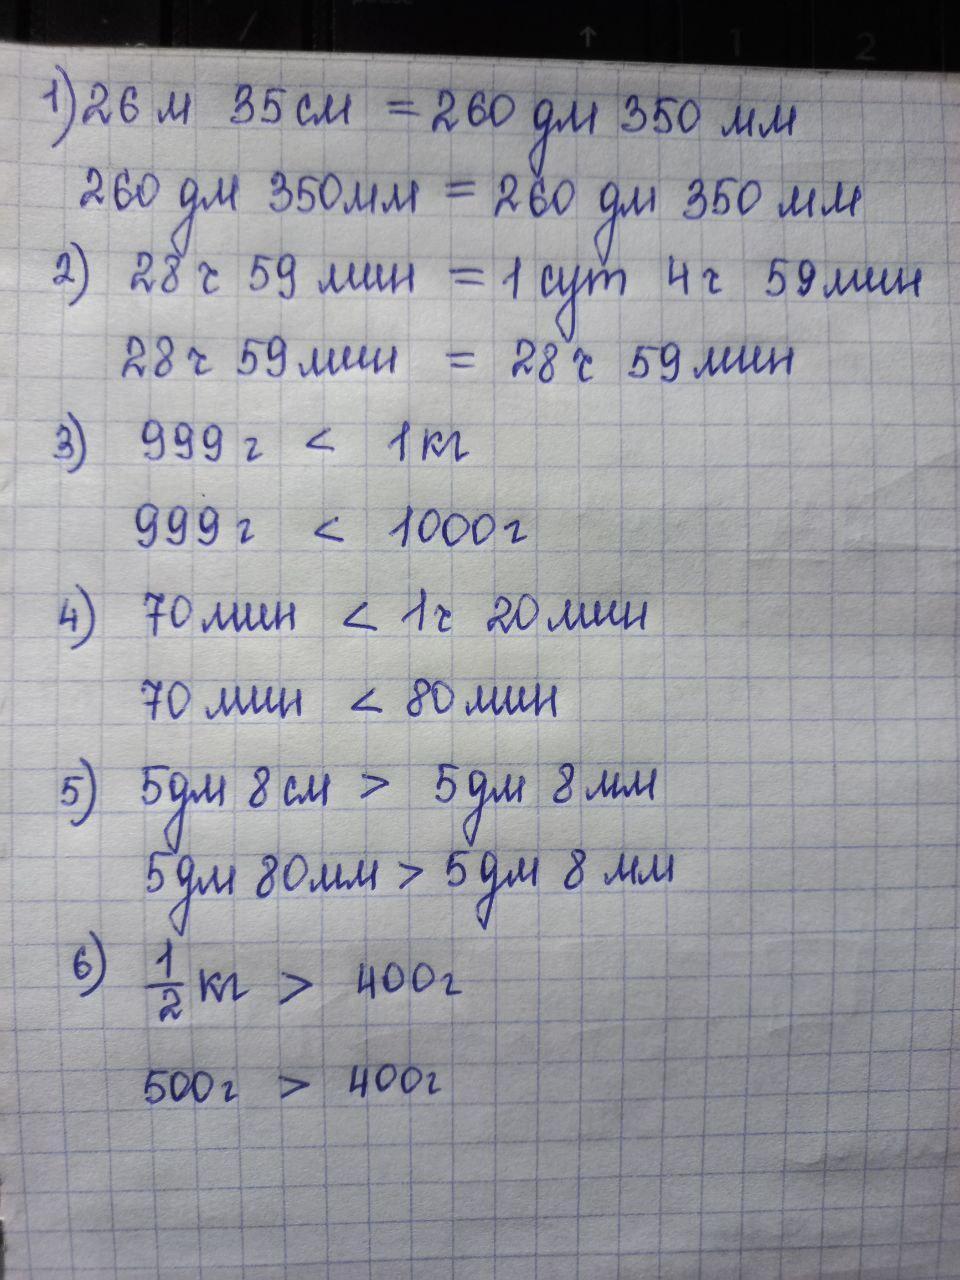 1) 26 м 35 см = 260 дм 350 мм
260 дм 350 мм = 260 дм 350 мм
2) 28 ч 59 мин = 1 сут 4 ч 59 мин
28 ч 59 мин = 28 ч 59 мин
3) 999 г < 1 кг
999 г < 1000 г
4) 70 мин < 1 ч 20 мин
70 мин < 80 мин
5) 5 дм 8 см > 5 дм 8 мм
5 дм 80 мм > 5 дм 8 мм
6) 1/2 кг > 400 г
500 г > 400 г